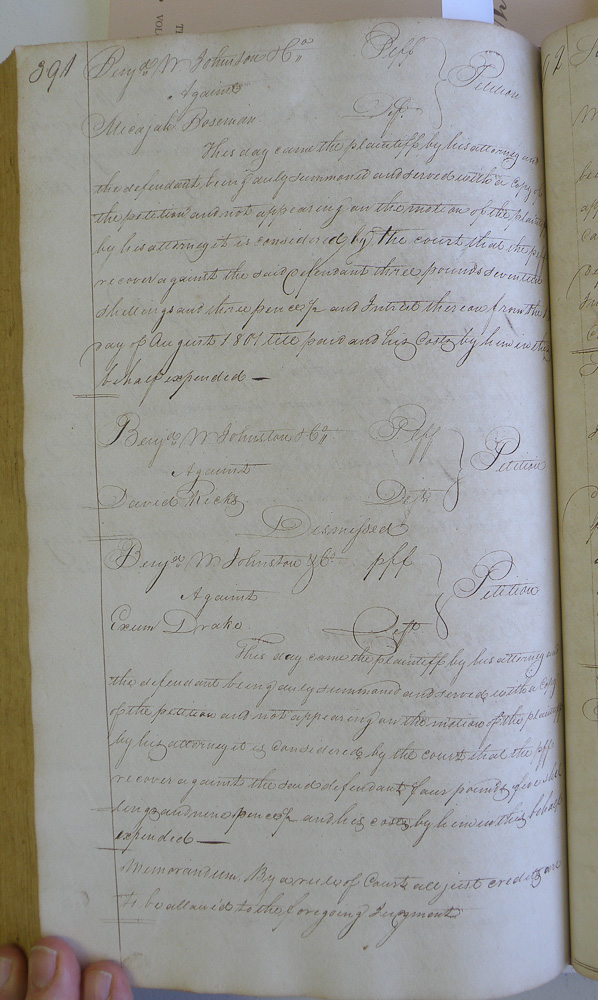 391
Benja W Johnston & Co Peff
Against Petition
Micajah Boseman Deft
This day came the plaintiff by his attorney and
the defendant being duly summoned and served with a Copy of
the petition and not appearing on the motion of the plaintiff
by his attorney it is considered by the court that the
recover against the said Defendant three pounds
shillings and three pence ½ and Interest thereon from the
day of August 1801 till paid and his Costs by him in this
behalf expended —
Benja W Johnston & Co Peff
Against Petition
David Ricks Deft
Dismissed
Benja W Johnston & Co pff
Against Petition
Exum Drake Deft
This day came the plaintiff by his attorney and
the defendant being duly summoned and served with a Copy
of the petition and not appearing on the motion of the plaintiff
by his attorney it is Considered by the court that the pff
recover against the said defendant four pounds five shil
lings and nine pence ½ and his costs by him in this behalf
expended —
Memorandum By a rule of Court all just credits are
to be allowed to the foregoing Judgment